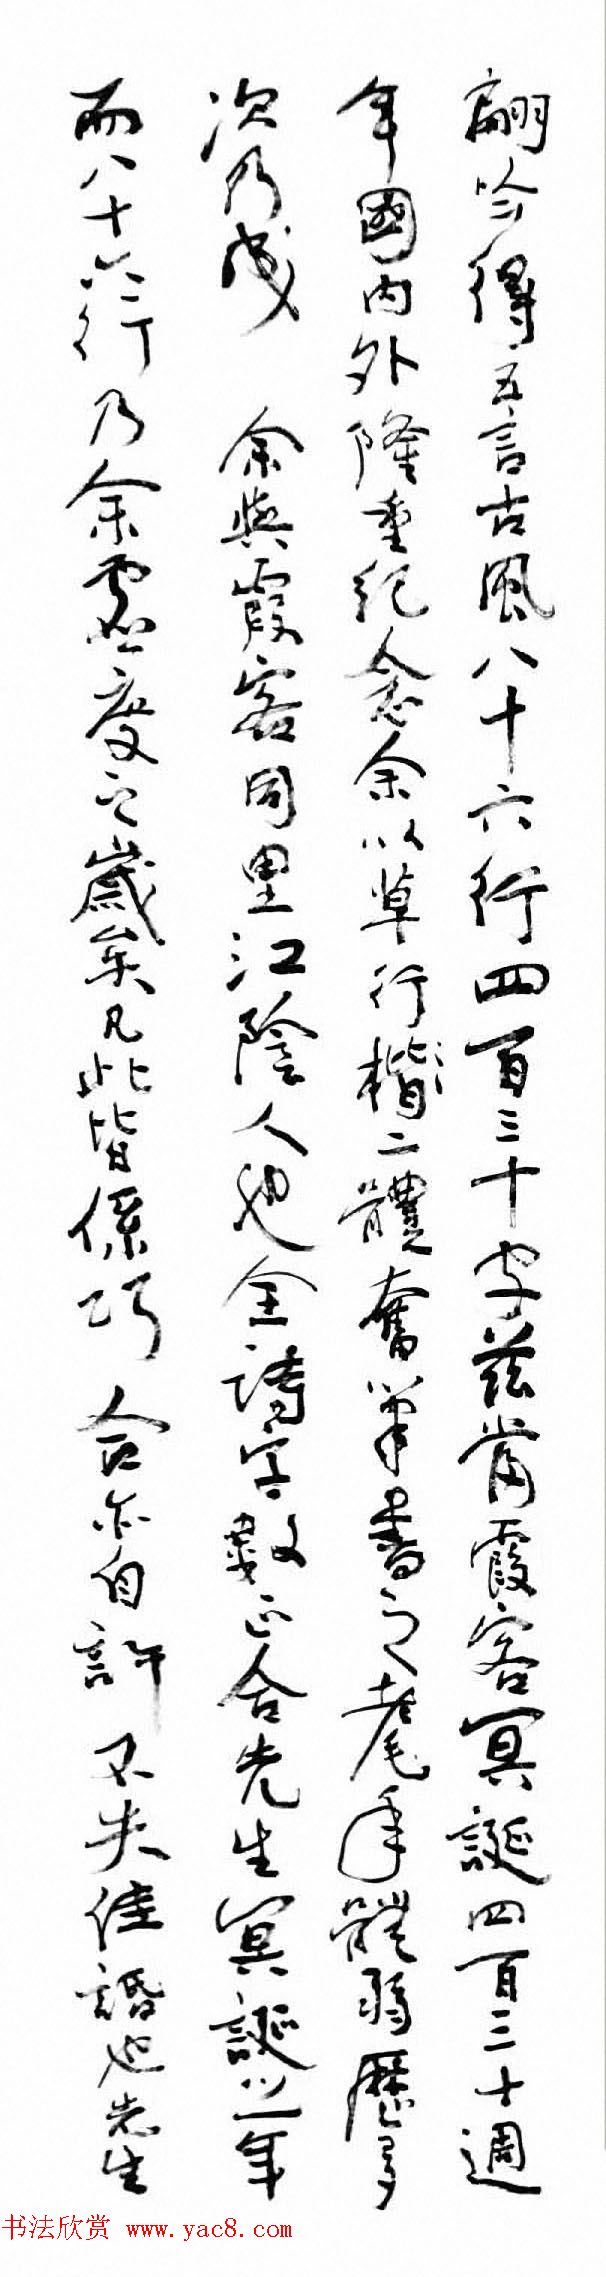 翩吟得五言古風八十六行四百三十字茲當霞客冥誕四百三十週
年國內外隆重紀念余以草行楷二體奮筆書之耄年體弱歷多
次乃成 余與霞客同里江陰人也全詩字數正合先生冥誕之年
而八十六行乃余虛度之歲矣凡此皆係巧合亦自許不失佳話也先生
书法欣赏 www.yac8.com